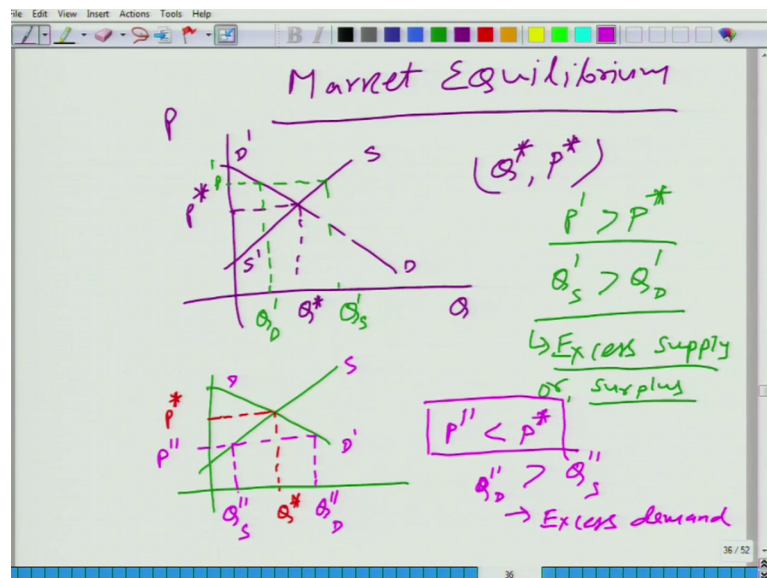 File Edit View Insert Actions Tools Help
Market Equilibrium
P
D'
S
(Q*, P*)
P'
P*
P' > P*
S'
D
Q'S > Q'D
Q'D Q* Q'S Q
↳ Excess Supply
or, Surplus
D
S
P*
P'' < P*
P''
D'
Q''D > Q''S
Q''S Q* Q''D
→ Excess demand
36 / 52
36